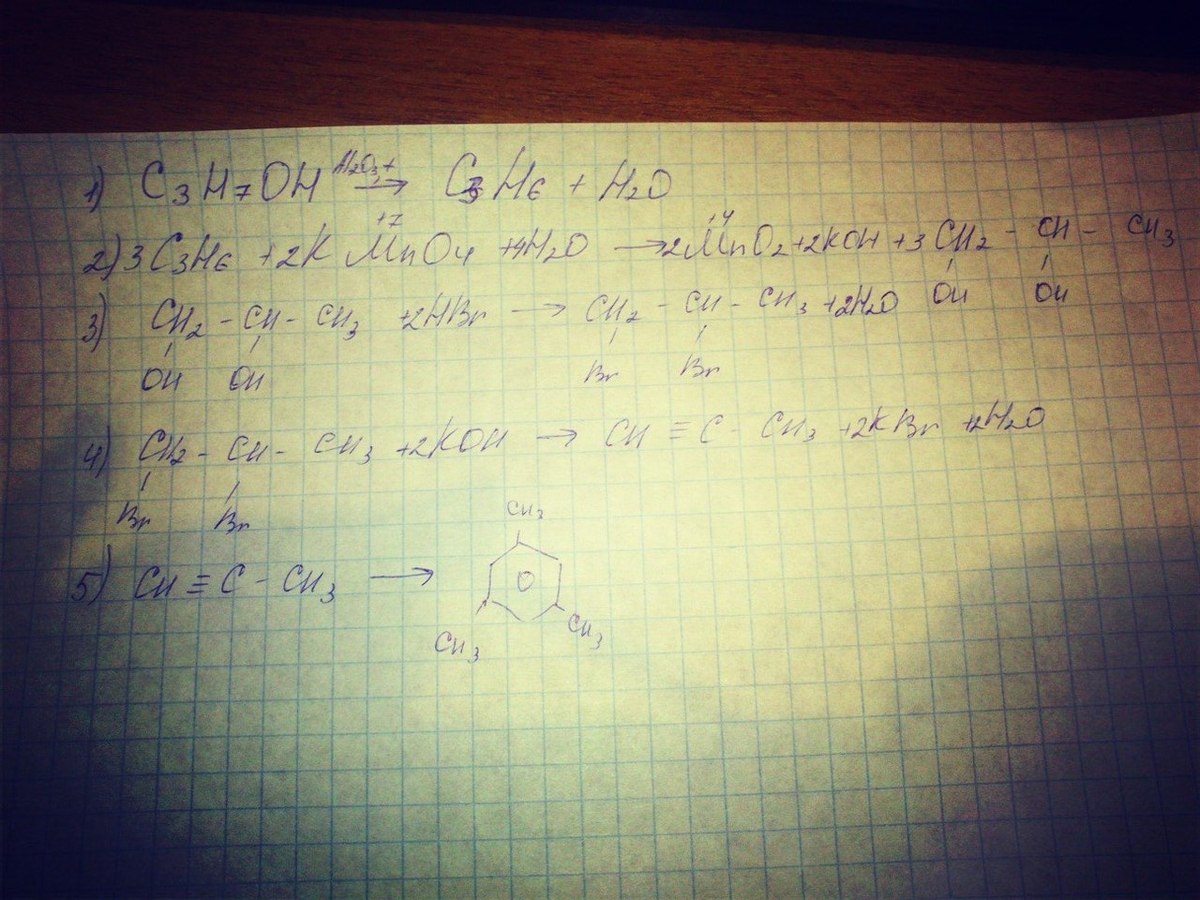 1) C3H7OH Al2O3,t → C3H6 + H2O
+7 +4
2) 3C3H6 + 2KMnO4 + 4H2O → 2MnO2 + 2KOH + 3CH2 - CH - CH3
OH OH
3) CH2 - CH - CH3 + 2HBr → CH2 - CH - CH3 + 2H2O
OH OH Br Br
4) CH2 - CH - CH3 + 2KOH → CH ≡ C - CH3 + 2KBr + 2H2O
Br Br
CH3
5) CH ≡ C - CH3 →
CH3 CH3